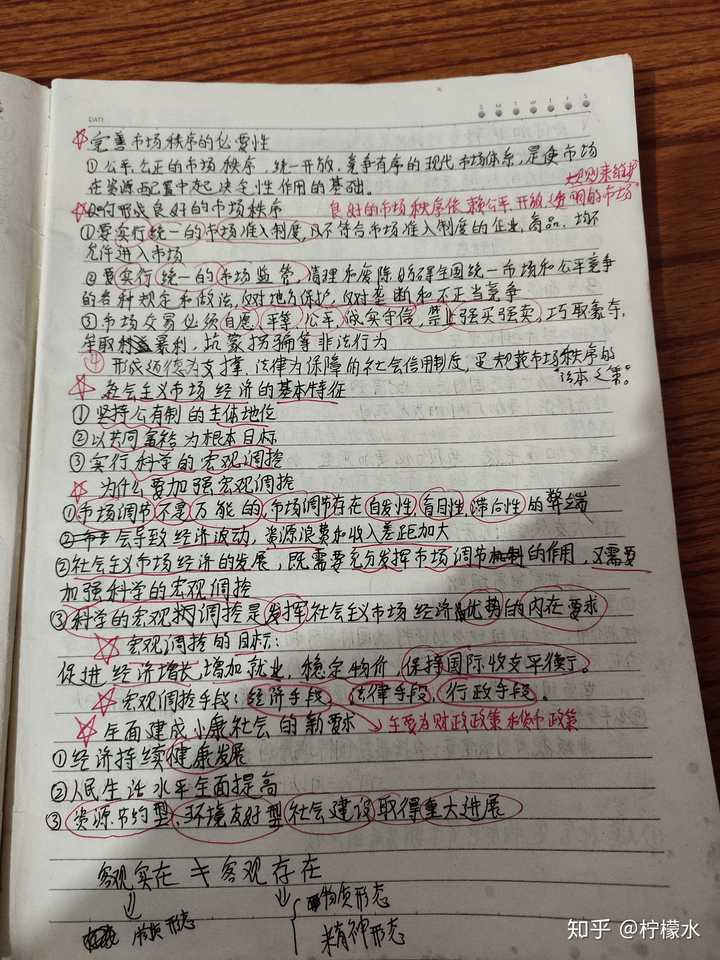 DATE
S M T W T F S
☆完善市场秩序的必要性
①公平公正的市场秩序，统一开放、竞争有序的现代市场体系，是使市场
在资源配置中起决定性作用的基础。
规则来维护
☆如何形成良好的市场秩序 良好的市场秩序依赖公平、开放、透明的市场
①要实行统一的市场准入制度，凡不符合市场准入制度的企业、商品，均不
允许进入市场
②要实行统一的市场监管，清理和废除妨碍全国统一市场和公平竞争
的各种规定和做法，反对地方保护，反对垄断和不正当竞争
③市场交易必须自愿、平等、公平、诚实守信，禁止强买强卖，巧取豪夺，
牟取暴利，坑蒙拐骗等非法行为
④ 形成道德为支撑，法律为保障的社会信用制度，是规范市场秩序的
治本之策。
☆ 社会主义市场经济的基本特征
①坚持公有制的主体地位
②以共同富裕为根本目标
③实行科学的宏观调控
☆ 为什么要加强宏观调控
①市场调节不是万能的，市场调节存在自发性，盲目性，滞后性的弊端
会导致经济波动，资源浪费和收入差距加大
②社会主义市场经济的发展，既需要充分发挥市场调节的作用，又需要
加强科学的宏观调控
③科学的宏观调控是发挥社会主义市场经济优势的内在要求
☆ 宏观调控的目标：
促进经济增长，增加就业，稳定物价，保持国际收支平衡。
☆ 宏观调控手段：经济手段，法律手段，行政手段。
☆ 全面建成小康社会的新要求 →主要为财政政策和货币政策
①经济持续健康发展
②人民生活水平全面提高
③资源节约型、环境友好型社会建设取得重大进展
客观实在 ≠ 客观存在
物质形态
物质形态
精神形态
知乎 @柠檬水